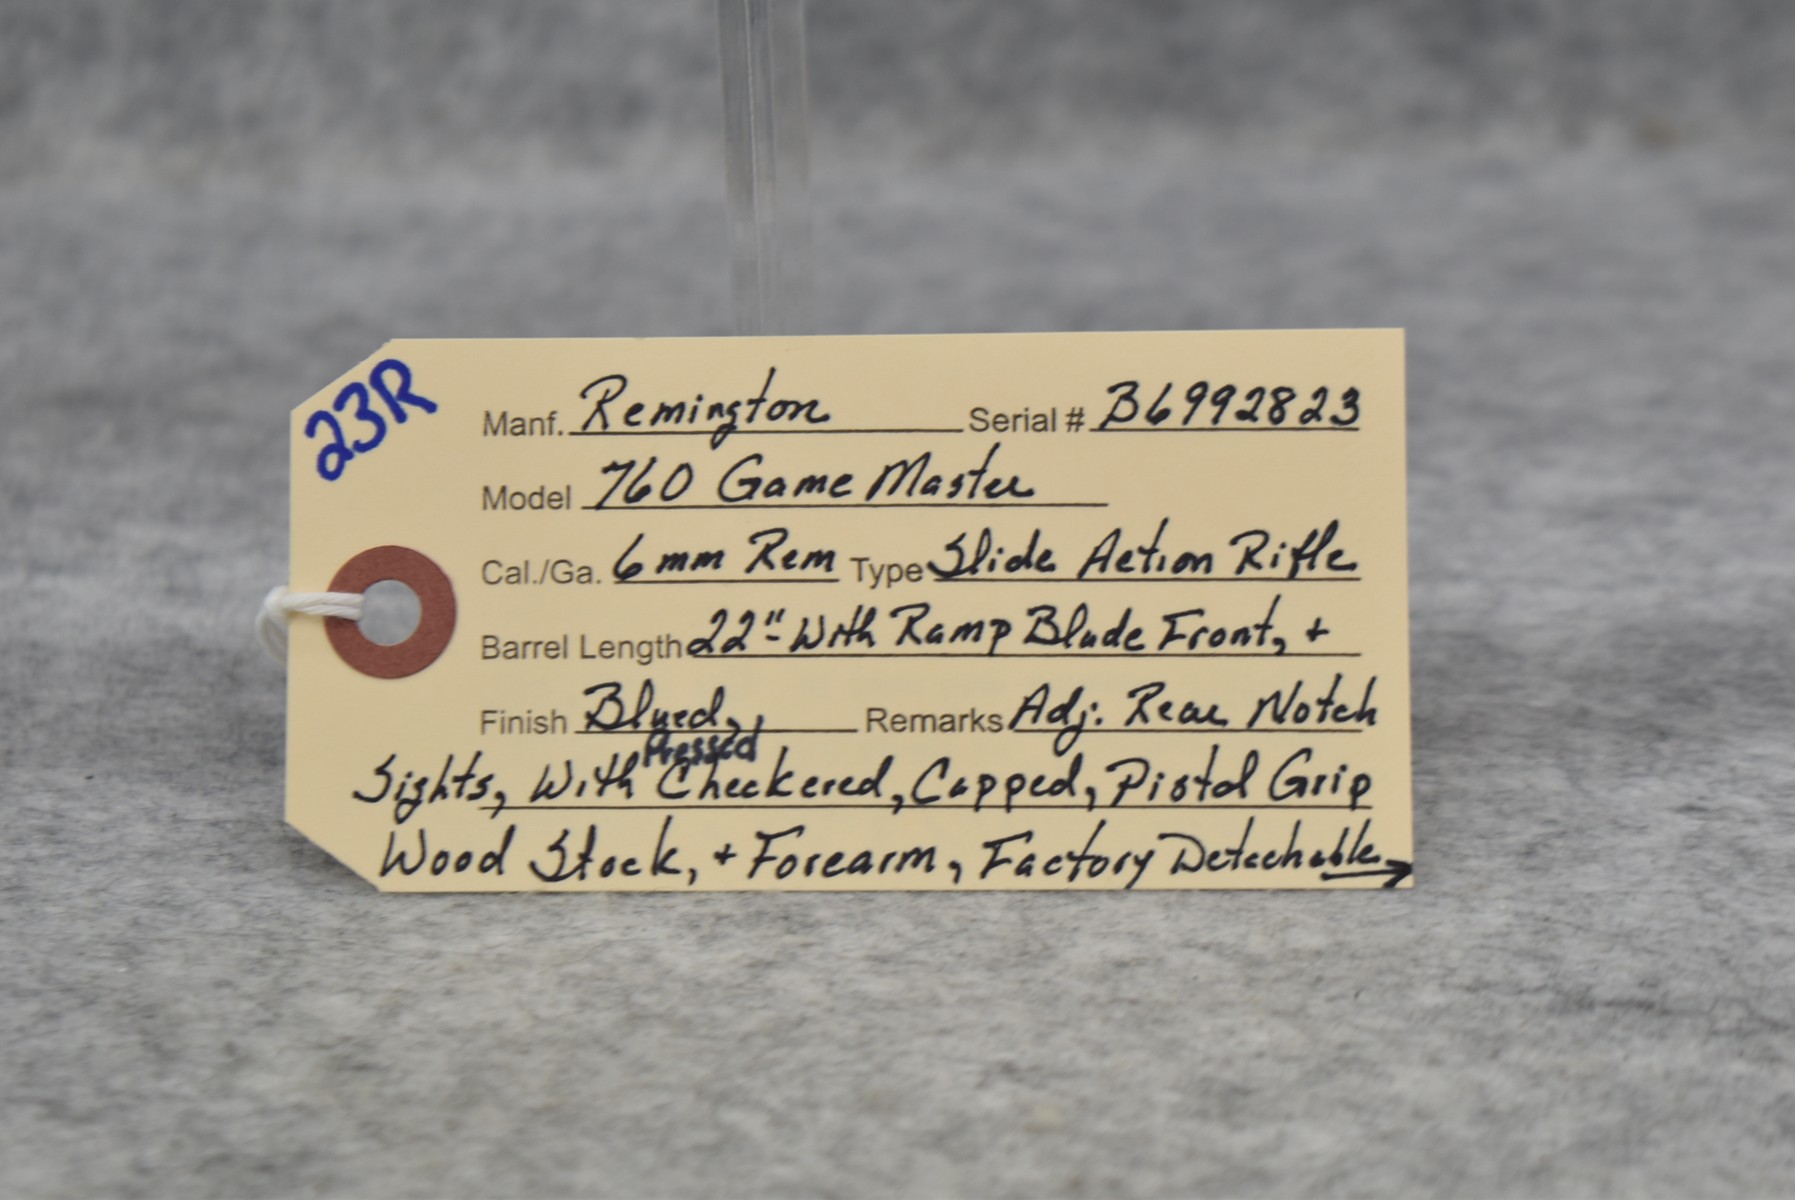 23R
Manf. Remington Serial # B6992823
Model 760 Game Master
Cal./Ga. 6mm Rem Type Slide Action Rifle
Barrel Length 22" - With Ramp Blade Front, +
Finish Blued, Remarks Adj. Rear Notch
Pressed
Sights, With Checkered, Capped, Pistol Grip
Wood Stock, + Forearm, Factory Detachable →